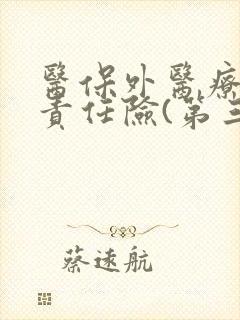 醫保外醫療
責任險(第三
蔡遠航